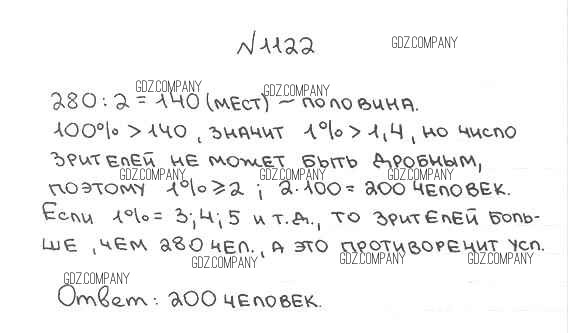 №1122 GDZ.COMPANY
GDZ.COMPANY GDZ.COMPANY
280:2=140 (мест) – половина.
100% > 140, значит 1% > 1,4, но число
зрителей не может быть дробным,
GDZ.COMPANY GDZ.COMPANY GDZ.COMPANY
поэтому 1% ⩾ 2; 2·100 = 200 человек.
Если 1% = 3; 4; 5 и т.д., то зрителей боль-
ше, чем 280 чел., а это противоречит усл.
GDZ.COMPANY GDZ.COMPANY GDZ.COMPANY
GDZ.COMPANY
Ответ: 200 человек.